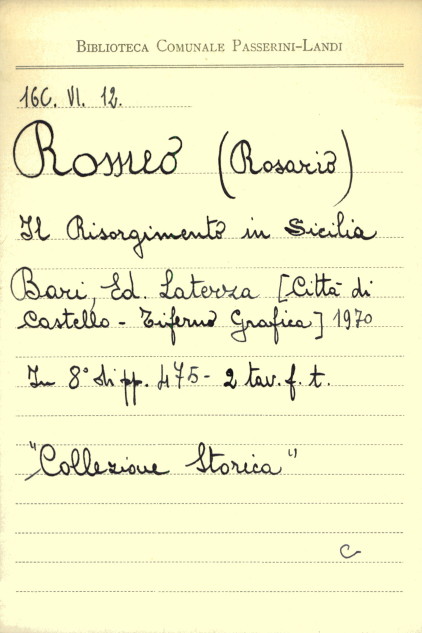 BIBLIOTECA COMUNALE PASSERINI-LANDI
16C. VI. 12.
Romeo (Rosario)
Il Risorgimento in Sicilia
Bari, Ed. Laterza [Città di
Castello - Tiferno Grafica] 1970
In 8° di pp. 475 - 2 tav. f. t.
"Collezione Storica"
C